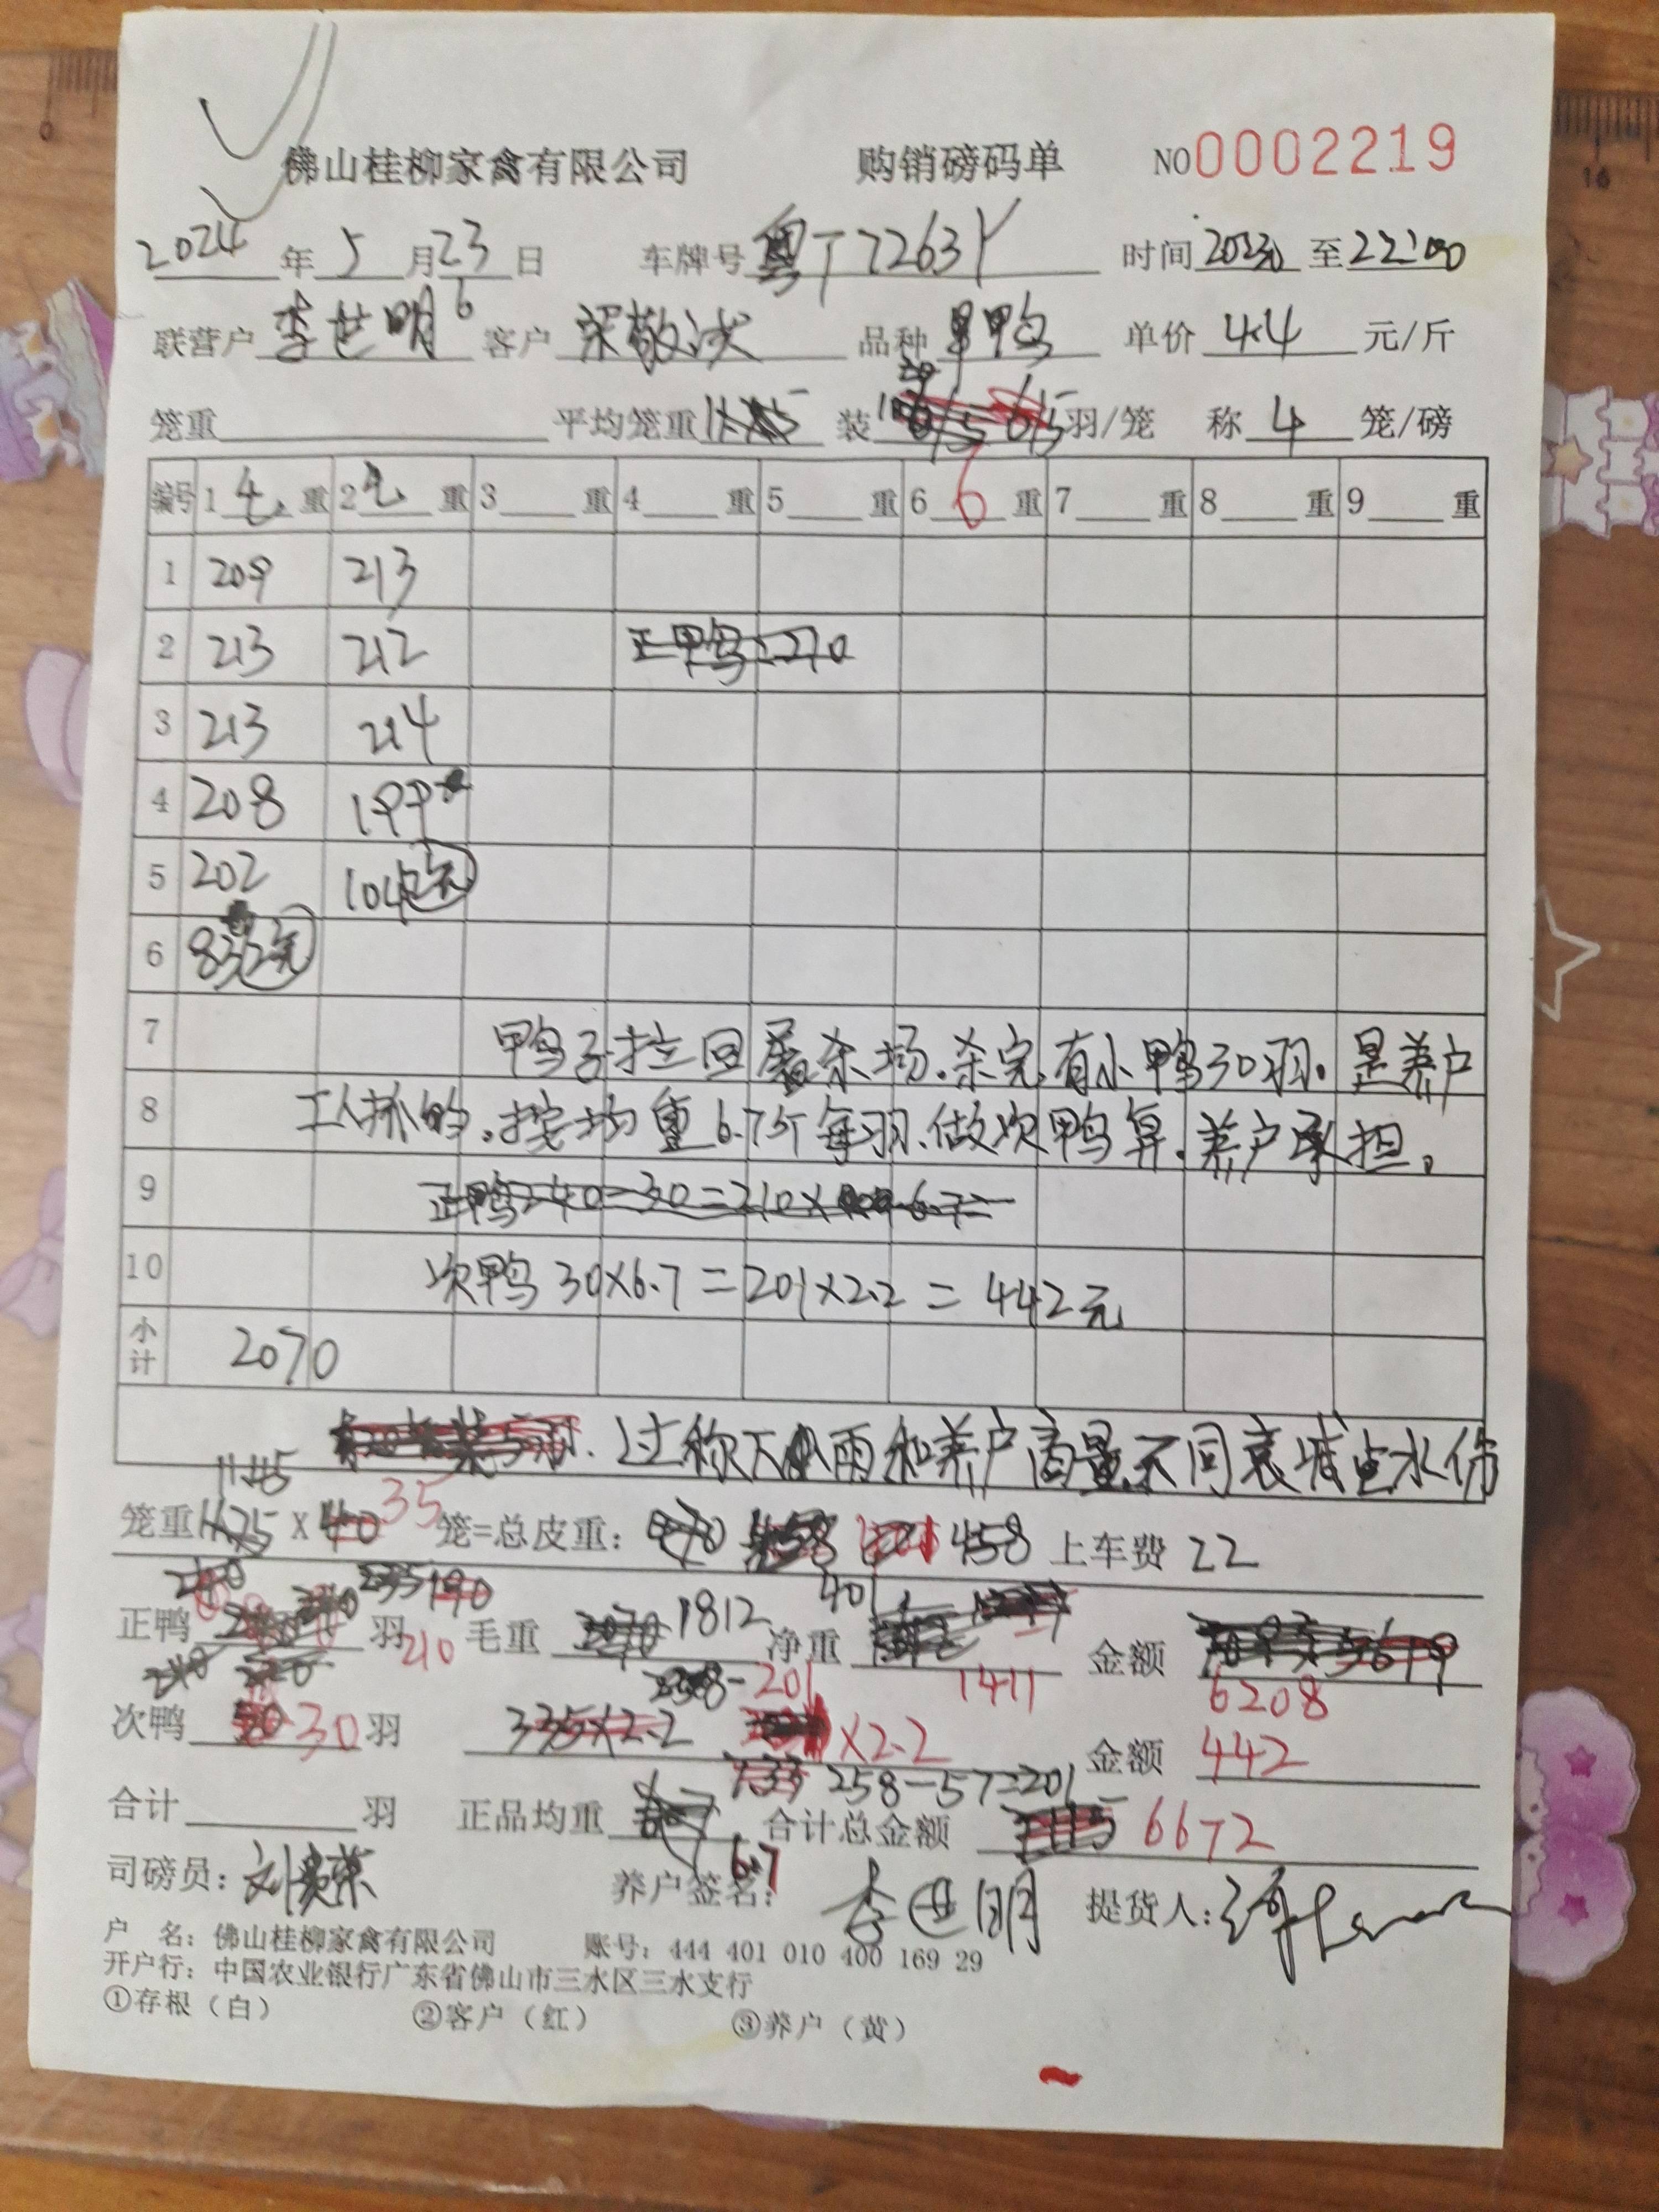 佛山桂柳家禽有限公司 购销磅码单 NO0002219
2024年5月23日 车牌号粤T7263Y 时间2030至22:00
联营户李世明6 客户 品种鸭 单价4.4元/斤
笼重 平均笼重 装 羽/笼 称4笼/磅
编号 1 重 2 重 3 重 4 重 5 重 6 6 重 7 重 8 重 9 重
1 209 213
2 213 212 正甲鸭:270
3 213 214
4 208 199
5 202 104 2元
6 83 2元
7 甲鸭子拉回屠杀场.杀完.有小甲鸭30羽.是养户
8 工人抓的.按均重6.7斤每羽.做次鸭算.养户承担。
9 正鸭240-30=210×6.7=
10 次鸭30×6.7=201×2.2=442元
小计 2070
过称下小雨和养户商量不同衰减点水份
11.45
笼重 × 40 35 笼=总皮重: 458 上车费22
正鸭 210 羽 毛重 1812 401 净重 1411 金额 6208
201
次鸭 30羽 335×2.2 ×2.2 金额442
258-57=201
合计 羽 正品均重 6.7 合计总金额 6672
司磅员: 养户签名:李世明 提货人:
户 名:佛山桂柳家禽有限公司 账号:444 401 010 400 169 29
开户行:中国农业银行广东省佛山市三水区三水支行
①存根(白) ②客户(红) ③养户(黄)